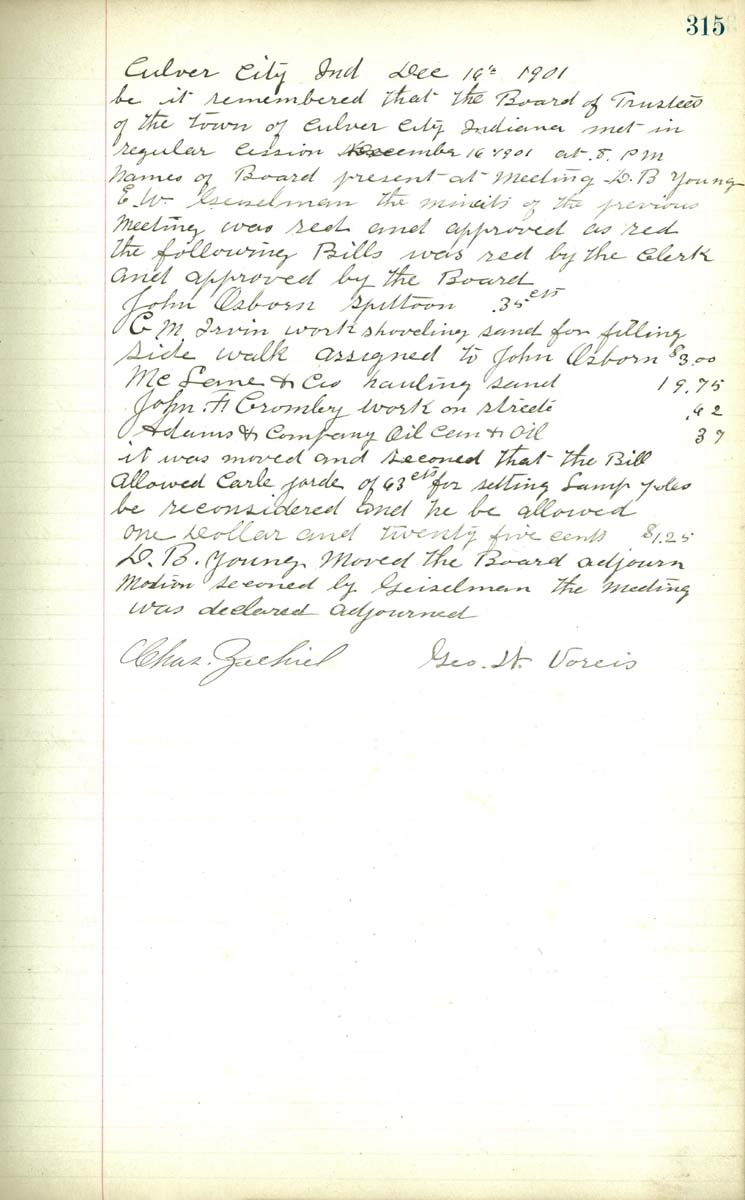 315
Culver City Ind Dec 16th 1901
be it remembered that the Board of Trustees
of the town of Culver City Indiana met in
regular Cession December 16 1901 at 8. PM
Names of Board present at Meeting D. B Young
E. W. Geiselman the mineits of the previous
Meeting was red and approved as red
the following Bills was red by the Clerk
and approved by the Board
John Osborn Spittoon .35 cts
E M Irvin work shoveling sand for filling
side walk assigned to John Osborn $3.00
Mc Lane & Co hauling sand 19.75
John. F. Cromley work on streets .62
Adams & Company Oil Can & Oil 37
it was moved and seconed that the Bill
Allowed Carle of 63 cts for setting Lamp poles
be reconsidered and he be allowed
One Dollar and twenty five cents $1.25
D. B. Young Moved the Board adjourn
Motion seconed by Geiselman the Meeting
was declared adjourned
Chas. Zechiel Geo. W. Voreis